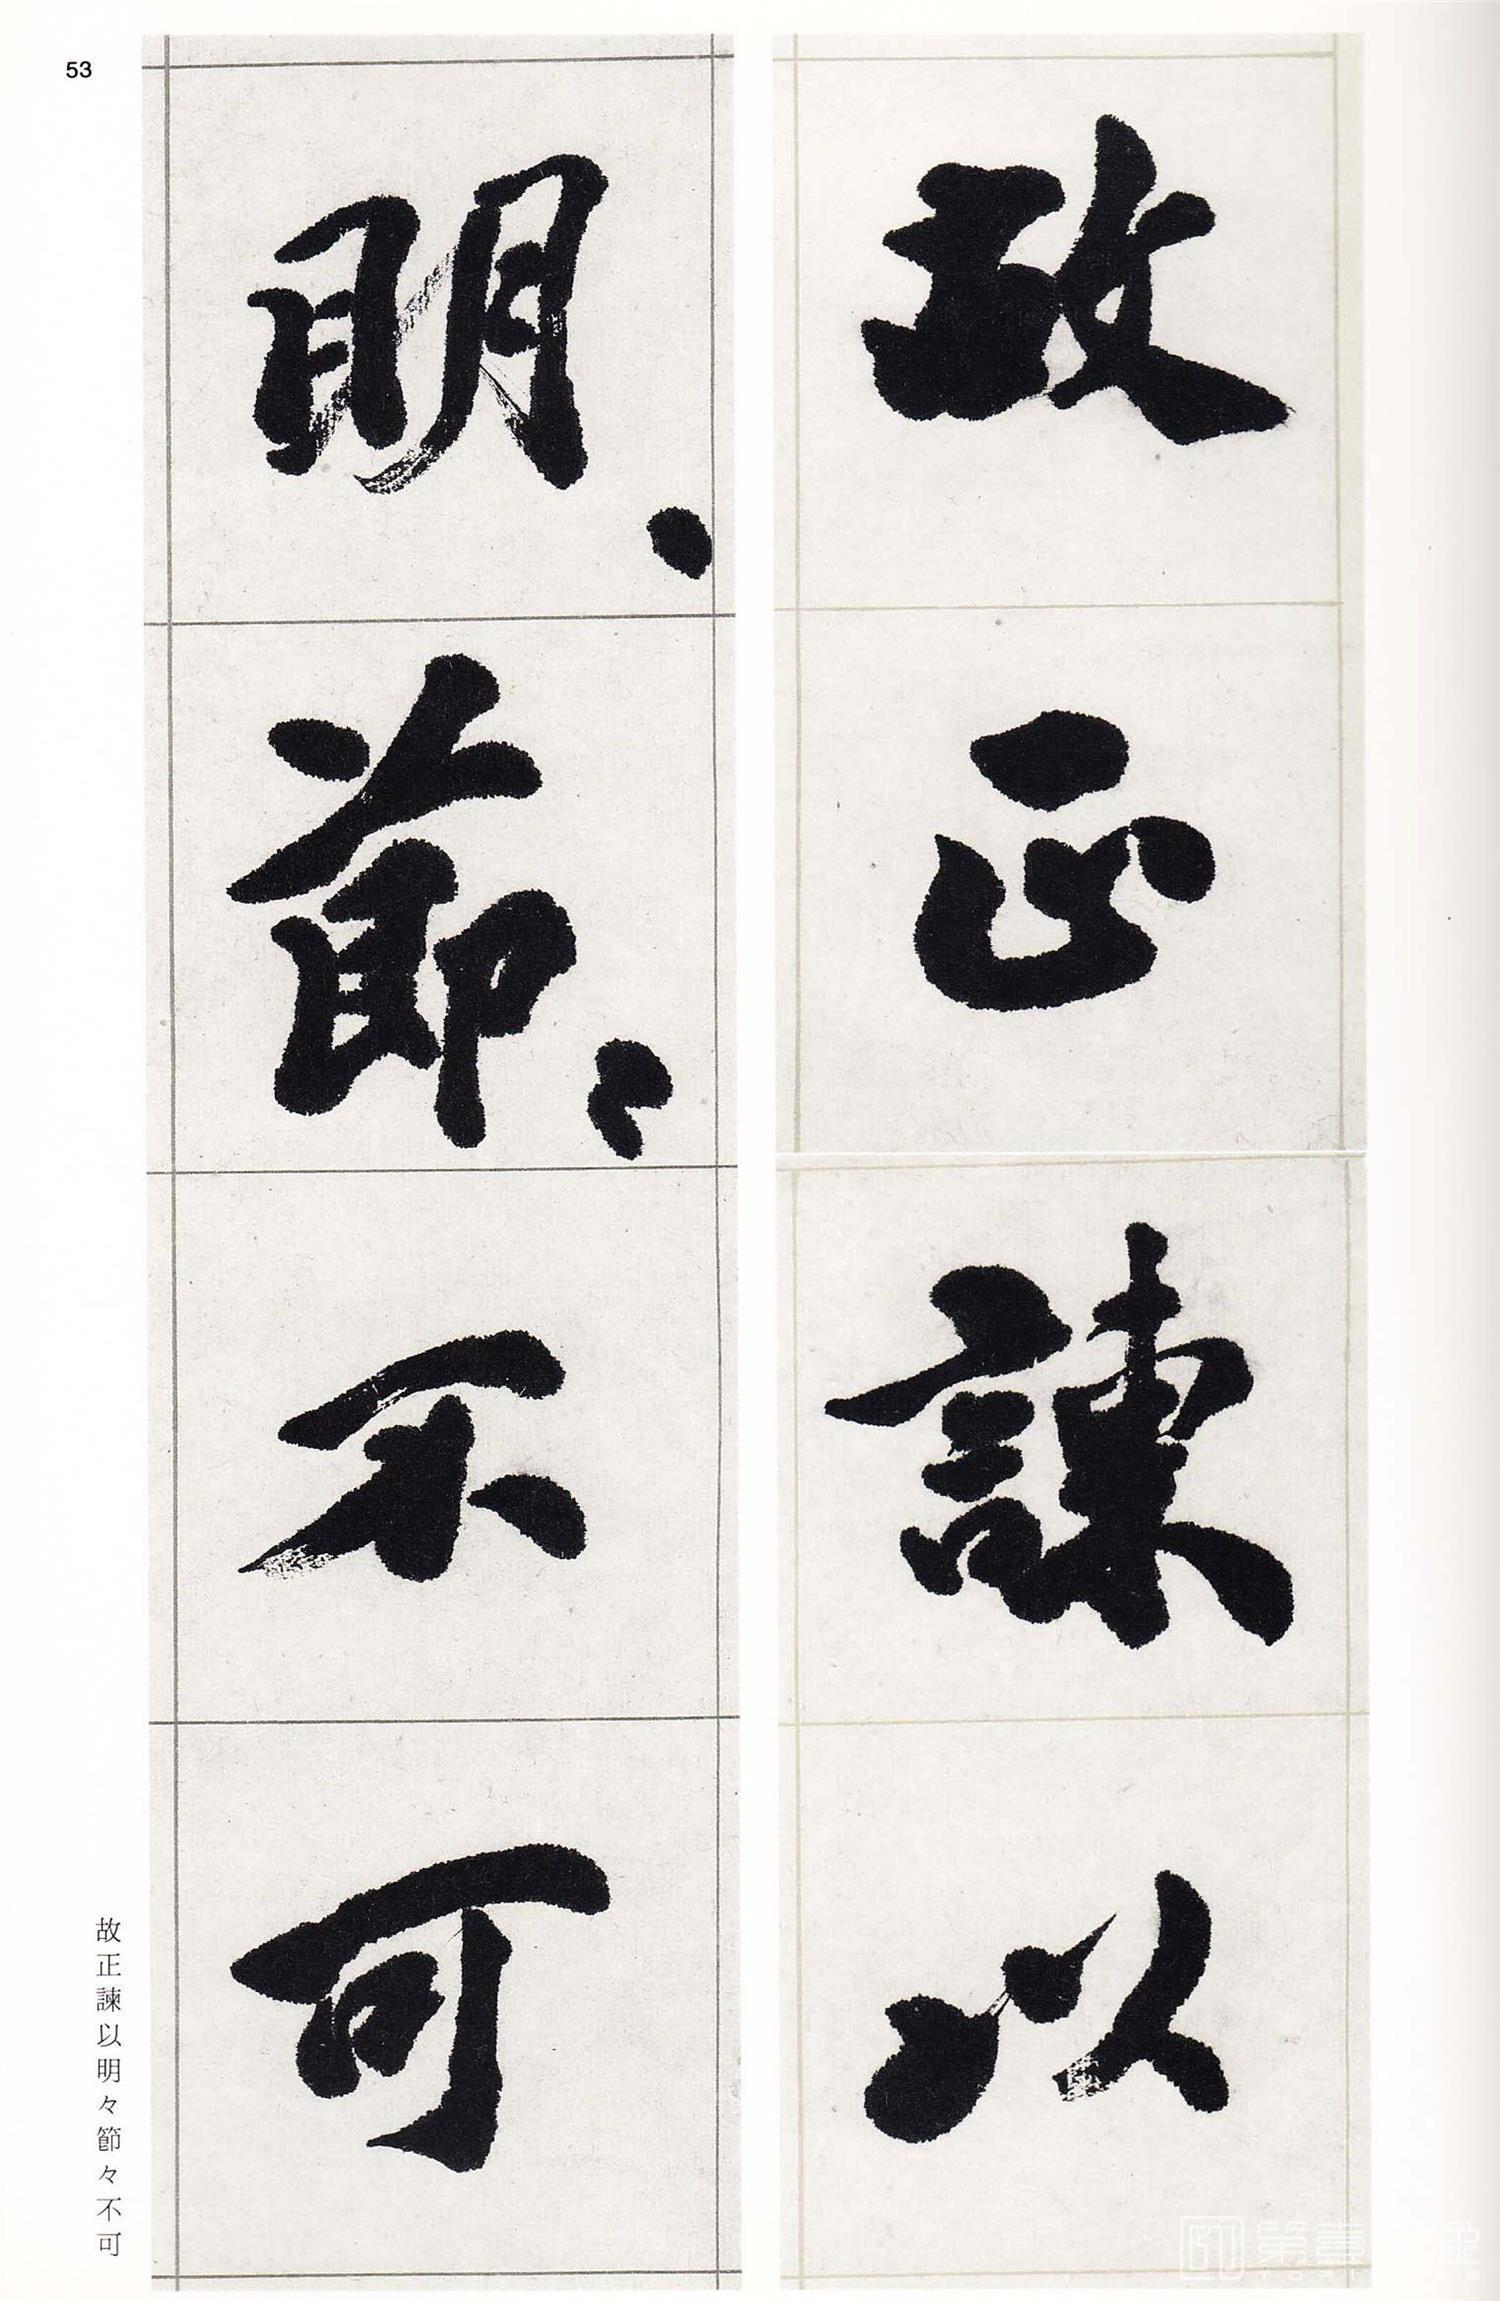 故正諫以
明々節々不可
53
故正諫以明々節々不可